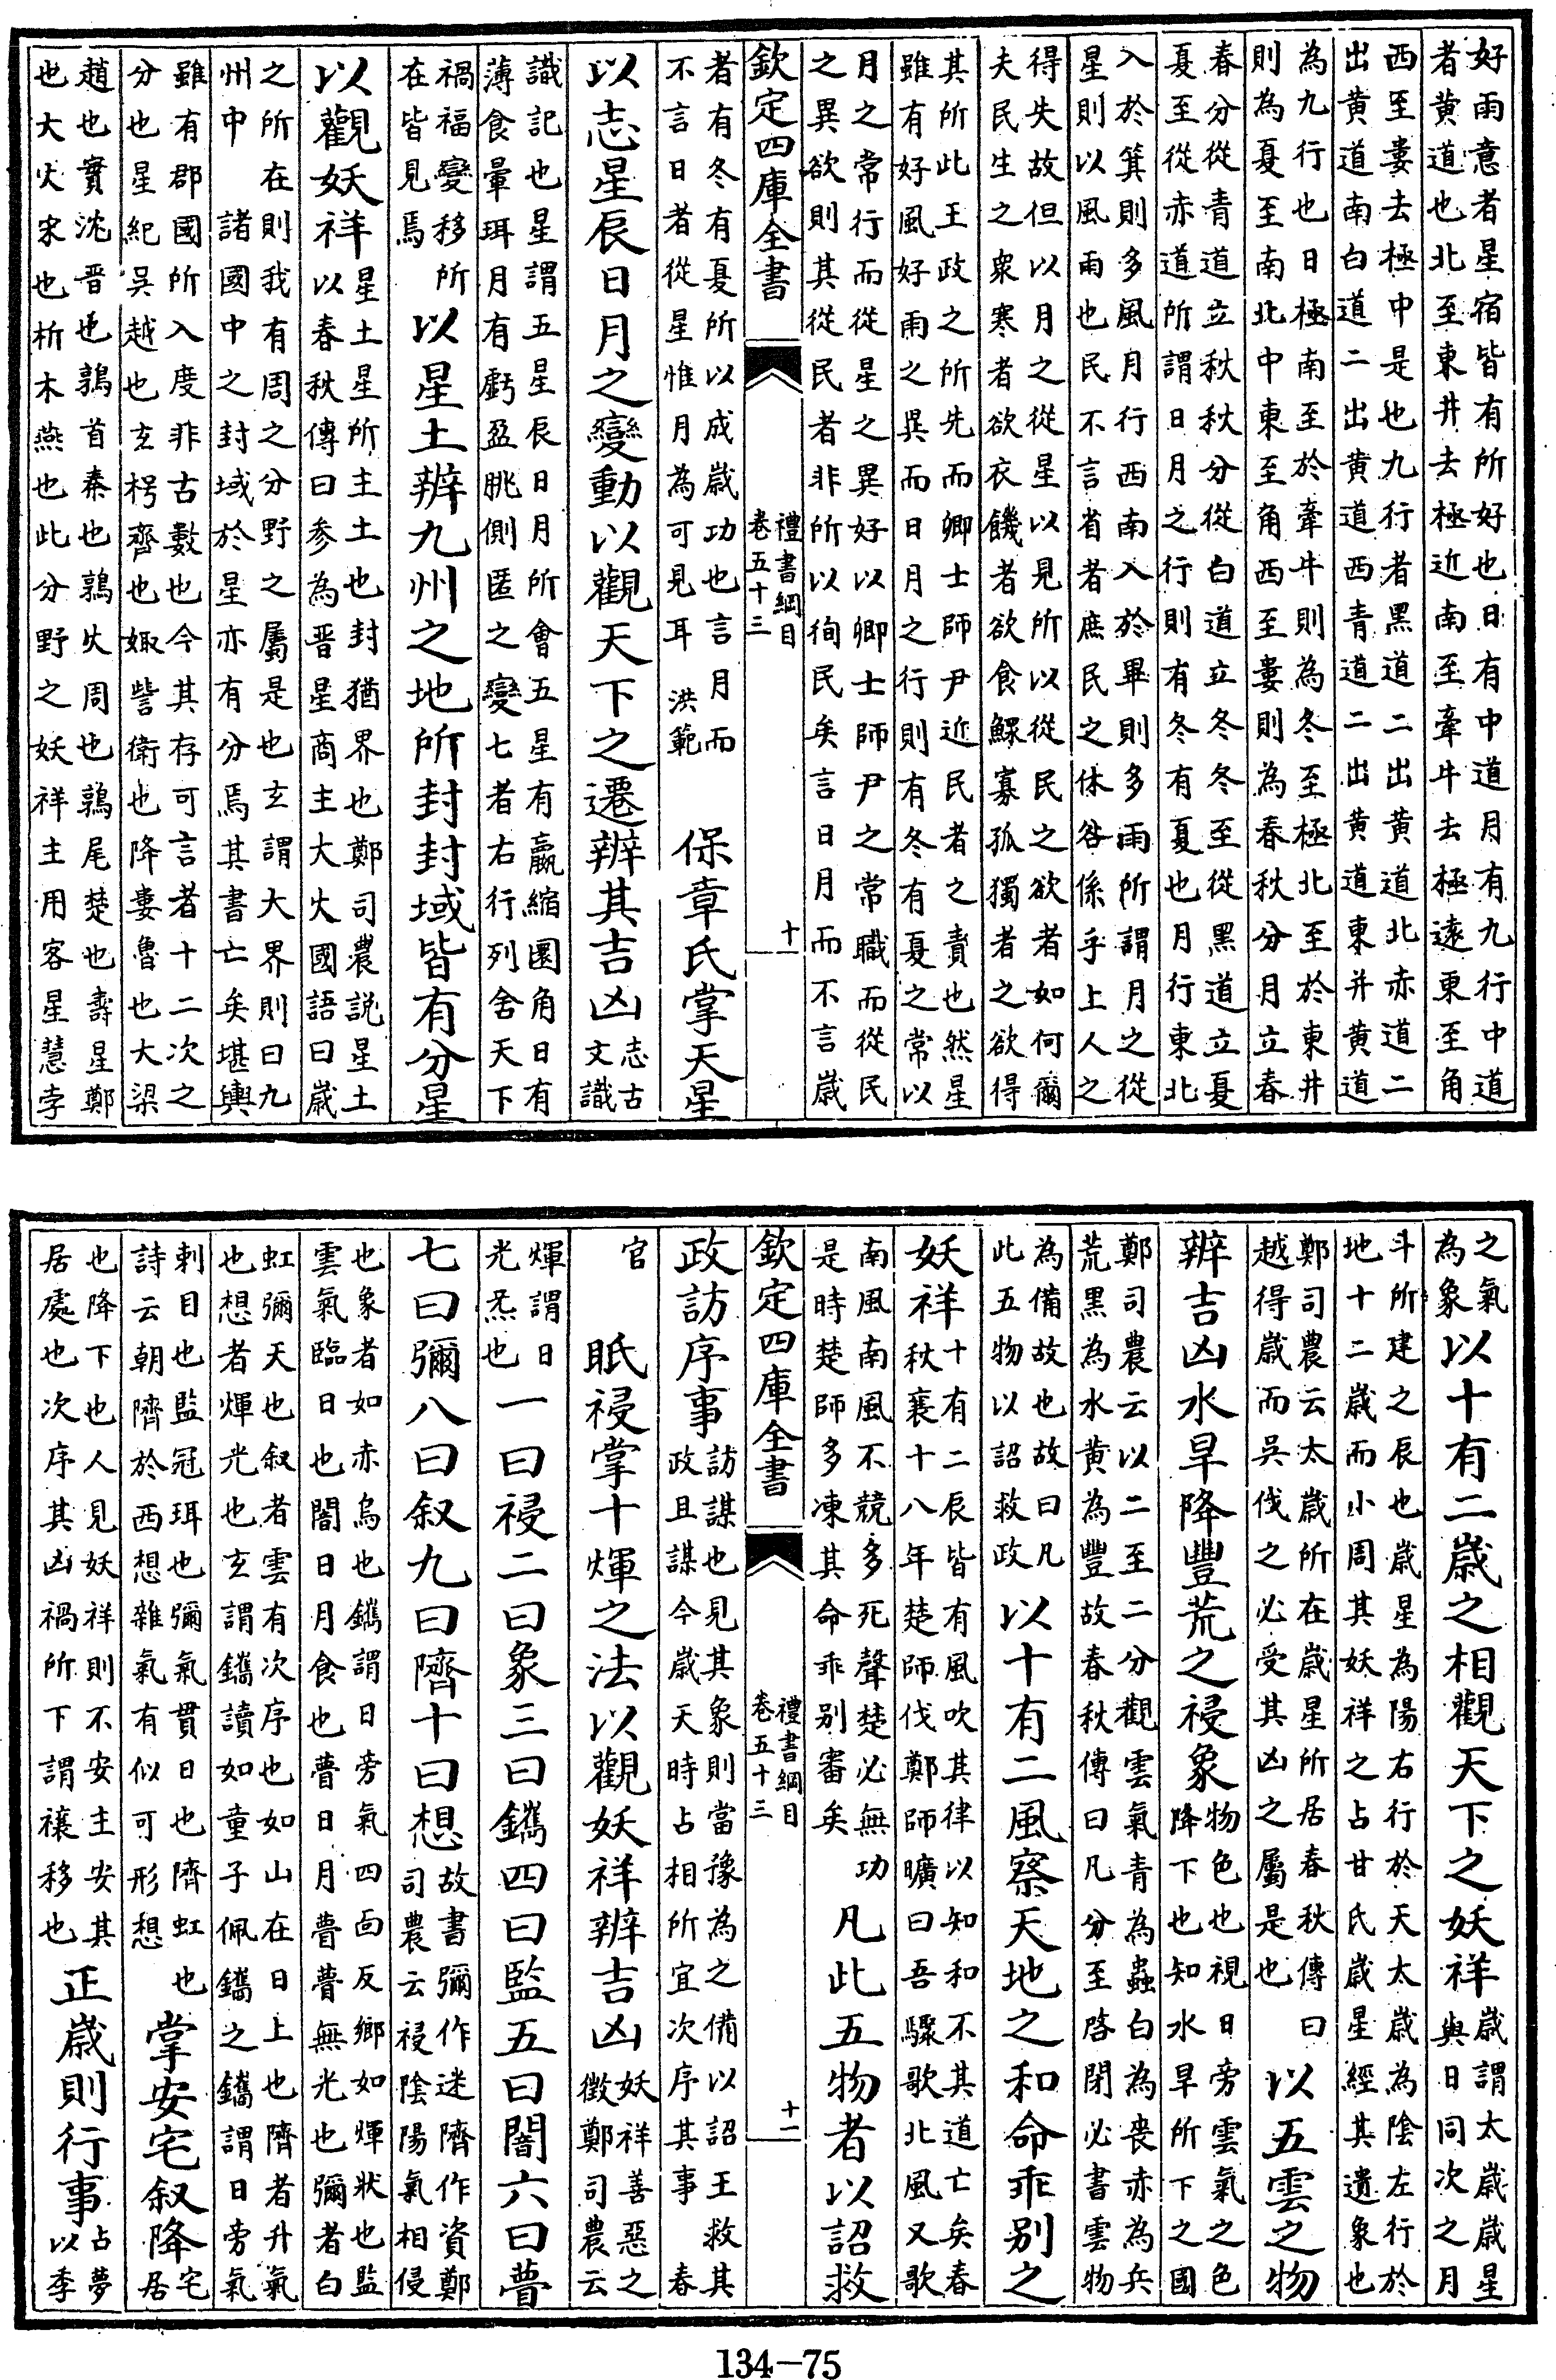 好雨意者星宿皆有所好也日有中道月有九行中道
者黄道也北至東井去極近南至牽牛去極遠東至角
西至婁去極中是也九行者黑道二出黄道北赤道二
出黄道南白道二出黄道西青道二出黄道東并黄道
為九行也日極南至於牽牛則為冬至極北至於東井
則為夏至南北中東至角西至婁則為春秋分月立春
春分從青道立秋秋分從白道立冬冬至從黑道立夏
夏至從赤道所謂日月之行則有冬有夏也月行東北
入於箕則多風月行西南入於畢則多雨所謂月之從
星則以風雨也民不言省者庶民之休咎係乎上人之
得失故但以月之從星以見所以從民之欲者如何爾
夫民生之衆寒者欲衣饑者欲食鰥寡孤獨者之欲得
其所此王政之所先而卿士師尹近民者之責也然星
雖有好風好雨之異而日月之行則有冬有夏之常以
月之常行而從星之異好以卿士師尹之常職而從民
之異欲則其從民者非所以徇民矣言日月而不言歲
欽定四庫全書 禮書綱目 卷五十三 十
者有冬有夏所以成歲功也言月而
不言日者從星惟月為可見耳 洪範
保章氏掌天星
以志星辰日月之變動以觀天下之遷辨其吉凶
志古
文識
識記也星謂五星辰日月所會五星有贏縮圜角日有
薄食暈珥月有虧盈朓側匿之變七者右行列舍天下
禍福變移所
在皆見焉
以星土辨九州之地所封封域皆有分星
以觀妖祥
星土星所主土也封猶界也鄭司農説星土
以春秋傳曰參為晋星商主大火國語曰歲
之所在則我有周之分野之屬是也玄謂大界則曰九
州中諸國中之封域於星亦有分焉其書亡矣堪輿
雖有郡國所入度非古數也今其存可言者十二次之
分也星紀吳越也玄枵齊也娵訾衛也降婁魯也大梁
趙也實沈晋也鶉首秦也鶉火周也鶉尾楚也壽星鄭
也大火宋也析木燕也此分野之妖祥主用客星慧孛
之氣
為象
以十有二歲之相觀天下之妖祥
歲謂太歲歲星
與日同次之月
斗所建之辰也歲星為陽右行於天太歲為陰左行於
地十二歲而小周其妖祥之占甘氏歲星經其遺象也
鄭司農云太歲所在歲星所居春秋傳曰
越得歲而吳伐之必受其凶之屬是也
以五雲之物
辨吉凶水旱降豐荒之祲象
物色也視日旁雲氣之色
降下也知水旱所下之國
鄭司農云以二至二分觀雲氣青為蟲白為喪赤為兵
荒黑為水黄為豐故春秋傳曰凡分至啓閉必書雲物
為備故也故曰凡
此五物以詔救政
以十有二風察天地之和命乖别之
妖祥
十有二辰皆有風吹其律以知和不其道亡矣春
秋襄十八年楚師伐鄭師曠曰吾驟歌北風又歌
南風南風不競多死聲楚必無功
是時楚師多凍其命乖别審矣
凡此五物者以詔救
欽定四庫全書 禮書綱目 卷五十三 十一
政訪序事
訪謀也見其象則當豫為之備以詔王救其
政且謀今歲天時占相所宜次序其事 春
官
眂祲掌十煇之法以觀妖祥辨吉凶
妖祥善惡之
徵鄭司農云
煇謂日
光炁也
一曰祲二曰象三曰鑴四曰監五曰闇六曰瞢
七曰彌八曰叙九曰隮十曰想
故書彌作迷隮作資鄭
司農云祲陰陽氣相侵
也象者如赤烏也鑴謂日旁氣四面反鄉如煇狀也監
雲氣臨日也闇日月食也瞢日月瞢瞢無光也彌者白
虹彌天也叙者雲有次序也如山在日上也隮者升氣
也想者煇光也玄謂鑴讀如童子佩鑴之鑴謂日旁氣
刺日也監冠珥也彌氣貫日也隮虹也
詩云朝隮於西想雜氣有似可形想
掌安宅叙降
宅
居
也降下也人見妖祥則不安主安其
居處也次序其凶禍所下謂禳移也
正歲則行事
占夢
以季
134—75